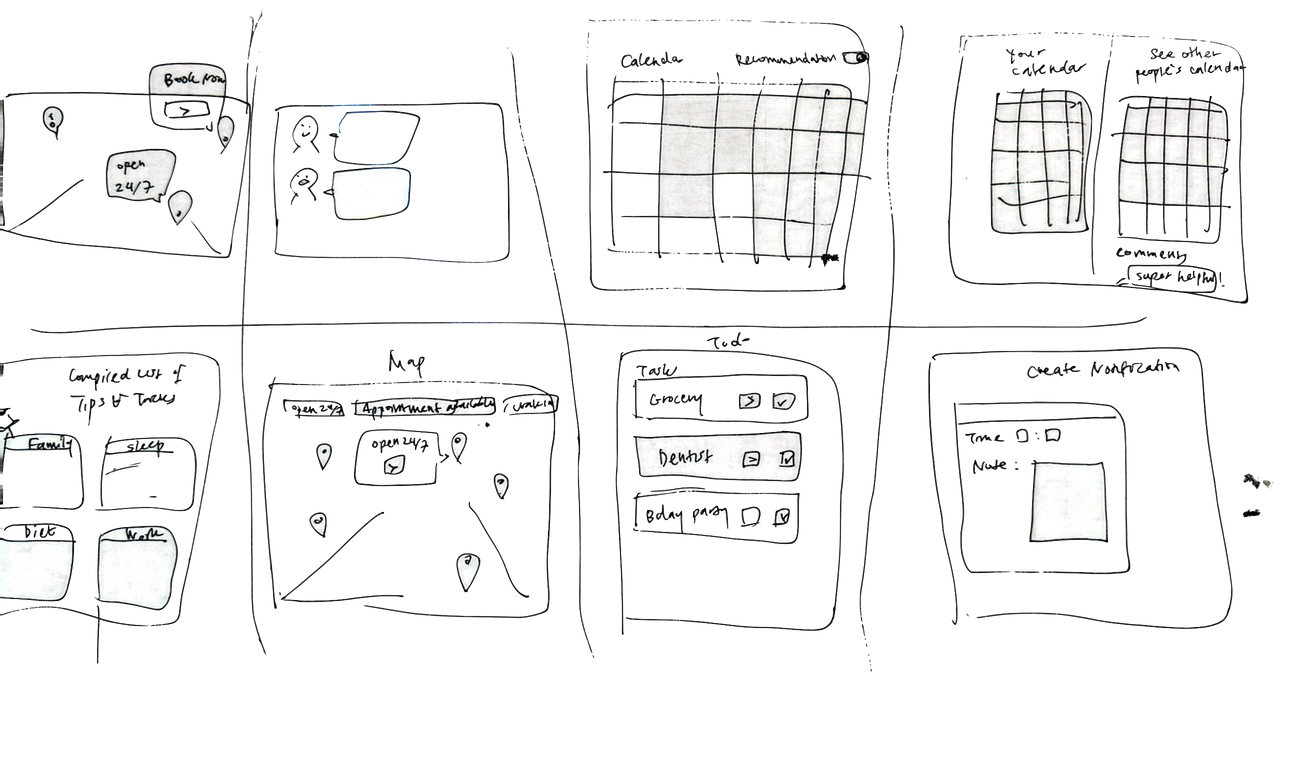 Book now
open
24/7
Calendar
Recommendation
Your
calendar
See other
people's calendar
comments
super helpful!
Compiled list of
Tips & Tricks
Family
sleep
Diet
Work
Map
open 24/7
Appointment available
Walk in
open 24/7
Tasks
Grocery
Dentist
Bday party
Create Notification
Time :
Note :